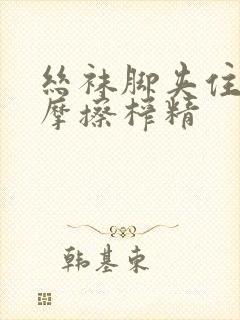 丝袜脚夹住
摩擦榨精
韩基东